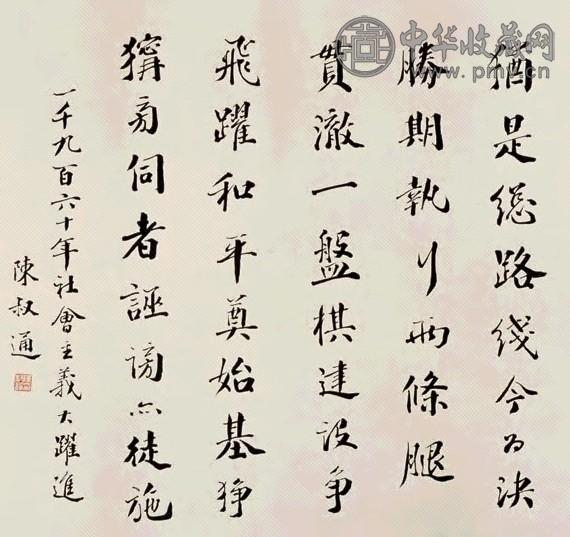 猶是總路綫今為決
勝期執行兩條腿
貫澈一盤棋建設争
飛躍和平奠始基猙
獰旁伺者誣謗亦徒施
一千九百六十年社會主義大躍進
陳叔通
中华收藏网